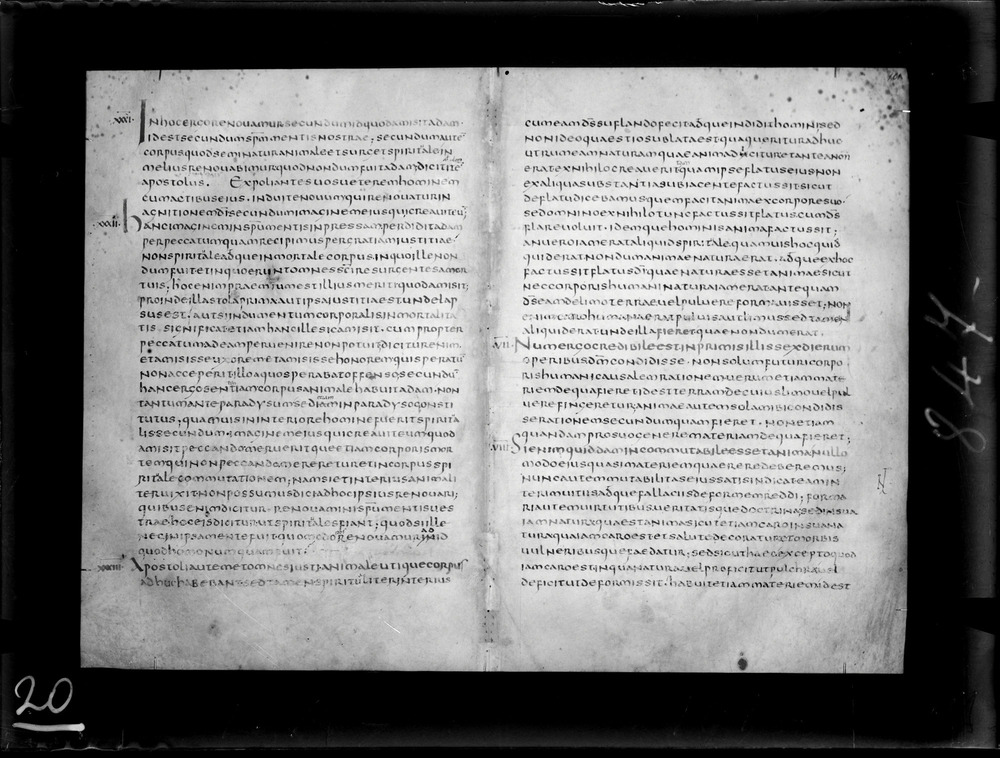 xxxi.
INhocergorenovamursecundumidquodamisitadam.
idestsecundumspmmentisnostrae; secundumaute
corpusquodseminaturanimaleetsurgetspiritalein
meliusrenovabimurquodnondumfuitadam
apostolus. Expoliantesvosveteremhominem
cumactibuseius. induitenovumquirenovaturin
agnitionemdisecundumimaginemeiusquicreaviteu;
xxii.
hancimagineminspumentisinpressamperdiditadam
perpeccatumquamrecipimuspergratiamiustitiae.
nonspiritaleadqueinmortalecorpus.inquoillenon
dumfuitetinquoeruntomnessciresurgentesamor
tuis; hocenimpraemiumestilliusmeritiquodamisit;
proindeillastolaprimaautipsaiustitiaestundelap
susest. autsiindumentumcorporalisinmortalita
tis. significatetiamhancillesicamisit. cumpropter
peccatumadeampervenirenonpotuit; diciturenim.
etamisisseuxoremetamisissehonoremquisperatu
nonacceperitilloaquosperabatoffensosecundu
hancergosententiamcorpusanimalehabuitadam.non
tantumanteparadysumsedetiaminparadysoconsti
tutus; quamvisininteriorehominefueritspirita
lissecundumimaginemeiusquicreaviteumquod
amisitpeccandomeruitquoetiamcorporismor
temquinonpeccandomerereturetincorpusspi
ritalecommutationem; namsietinteriusanimali
tervixitnonpossumusdiciadhocipsiusrenovari;
quibusenimdicitur.renovaminispumentisves
traehoceisdiciturutspiritalesfiant; quodsiille
necinipsamentefuit renovamurinid
quodhomonumquamfuit.
xxxiii.
Apostolienimetomnesiustianimaleutiquecorpus
adhuchabebansedtamenspiritaliterinterius
cumeamdssuflandofecitadqueindidithominised
nonideoquaestiosublataestquaquerituradhuc
utrumeamnaturamquaeanimadiciturettanteanon
eratexnihilocreaveritquamipseflatuseiusnon
exaliquasubstantiasubiacentefactussitsicut
deflatudicebamusquemfacitanimaexcorporesuo.
sedomninoexnihilotuncfactussitflatuscumds
flarevoluit. idemquehominisanimafactussit;
anverojamerataliquidspiritale.quamvishocquid
quideratnondumanimaenaturaerat. adqueexhoc
factussitflatusdiquaenaturaessetanimaesicut
neccorporishumaninaturaiameratantequam
dseamdelimoterraevelpulvereformavisset; non
enimcarohumanaeratpulvisautlimussedtamen
aliquideratundeillafieretquaenondumerat.
vii.
Numergocredibileestinprimisillissexdierum
operibusdmcondidisse. nonsolumfuturicorpo
rishumanicausalemrationemverumetiammate
riemdequafieretidestterramdecuiuslimovelpul
verefingereturanimaeautemsolamibicondidis
serationemsecundumquamfieret. nonetiam
quandamprosuogeneremateriamdequafieret;
viii.
Sienimquiddamincommutabileessetanimanullo
modoeiusquasimateriemquaereredeberemus;
nuncautemmutabilitaseiussatisindicateamin
terimvitiisadquefallaciisdeformemreddi; forma
riautemvirtutibusveritatisquedoctrina; sedinsua
iamnaturaquaestanimasicutetiamcaroinsuana
turaquaiamcaroestetsalutedecoraturetmorbis
vulneribusquefaedatur; sedsicuthaecexceptoquod
iamcaroestinquanaturavelproficitutpulchravel
deficitutdeformissit. habuitetiammateriemidest
847
20